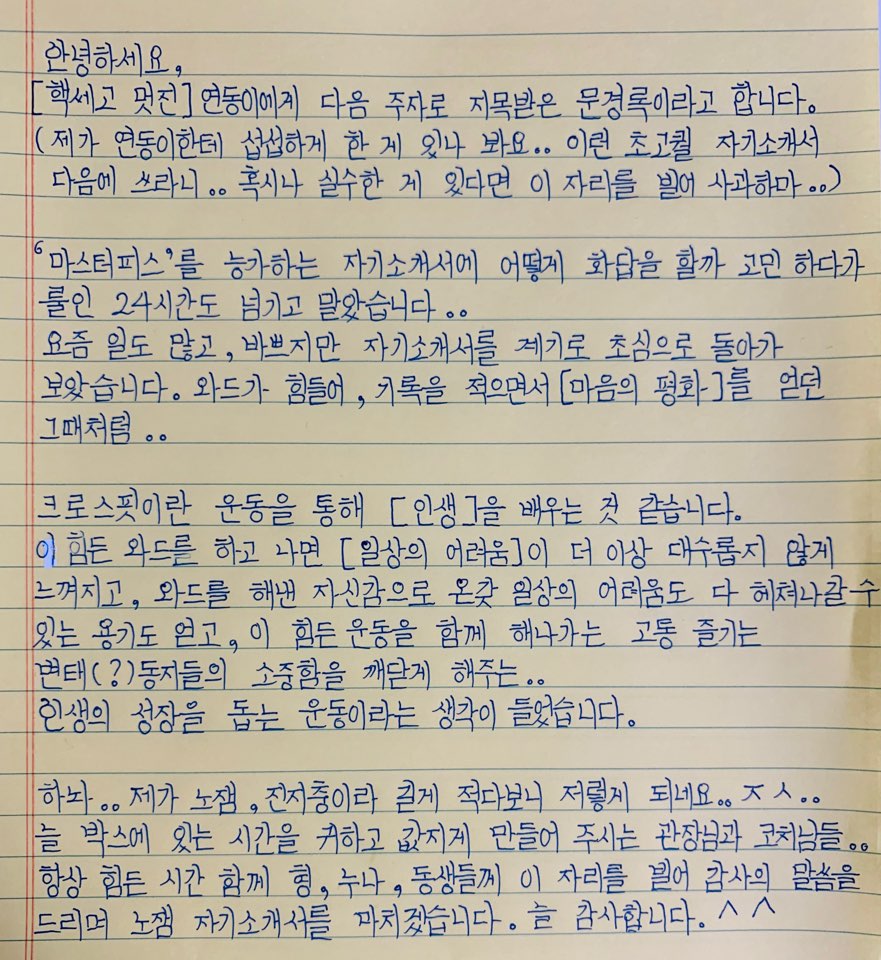 안녕하세요,
[핵세고 멋진] 연동이에게 다음 주자로 지목받은 문경록이라고 합니다.
(제가 연동이한테 섭섭하게 한 게 있나 봐요.. 이런 초고퀄 자기소개서
다음에 쓰라니.. 혹시나 실수한 게 있다면 이 자리를 빌어 사과하마..)
'마스터피스'를 능가하는 자기소개서에 어떻게 화답을 할까 고민 하다가
룰인 24시간도 넘기고 말았습니다..
요즘 일도 많고, 바쁘지만 자기소개서를 계기로 초심으로 돌아가
보았습니다. 와드가 힘들어, 기록을 적으면서 [마음의 평화]를 얻던
그때처럼..
크로스핏이란 운동을 통해 [인생]을 배우는 것 같습니다.
이 힘든 와드를 하고 나면 [일상의 어려움]이 더 이상 대수롭지 않게
느껴지고, 와드를 해낸 자신감으로 온갖 일상의 어려움도 다 헤쳐나갈 수
있는 용기도 얻고, 이 힘든 운동을 함께 해나가는 고통 즐기는
변태(?)동지들의 소중함을 깨닫게 해주는..
인생의 성장을 돕는 운동이라는 생각이 들었습니다.
하놔.. 제가 노잼, 진지충이라 길게 적다보니 저렇게 되네요.. ㅈㅅ..
늘 박스에 있는 시간을 귀하고 값지게 만들어 주시는 관장님과 코치님들..
항상 힘든 시간 함께 형, 누나, 동생들께 이 자리를 빌어 감사의 말씀을
드리며 노잼 자기소개서를 마치겠습니다. 늘 감사합니다. ^^